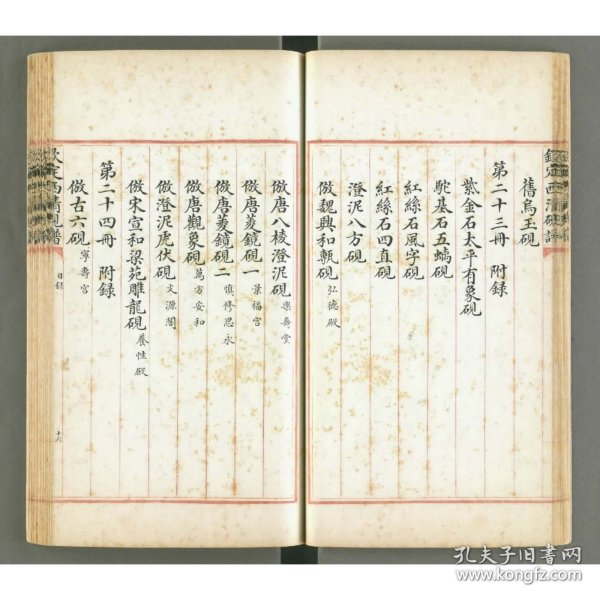 舊烏玉硯
第二十三冊 附錄
紫金石太平有象硯
駝基石五螭硯
紅絲石風字硯
紅絲石四直硯
澄泥八方硯
倣魏興和甎硯 弘德殿
倣唐八棱澄泥硯 樂壽堂
倣唐菱鏡硯一 景福宮
倣唐菱鏡硯二 慎修思永
倣唐觀象硯 萬方安和
倣澄泥虎伏硯 文源閣
倣宋宣和梁苑雕龍硯 養性殿
第二十四冊 附錄
倣古六硯 寧壽宮
目錄
孔夫子旧书网
www.kongfz.com